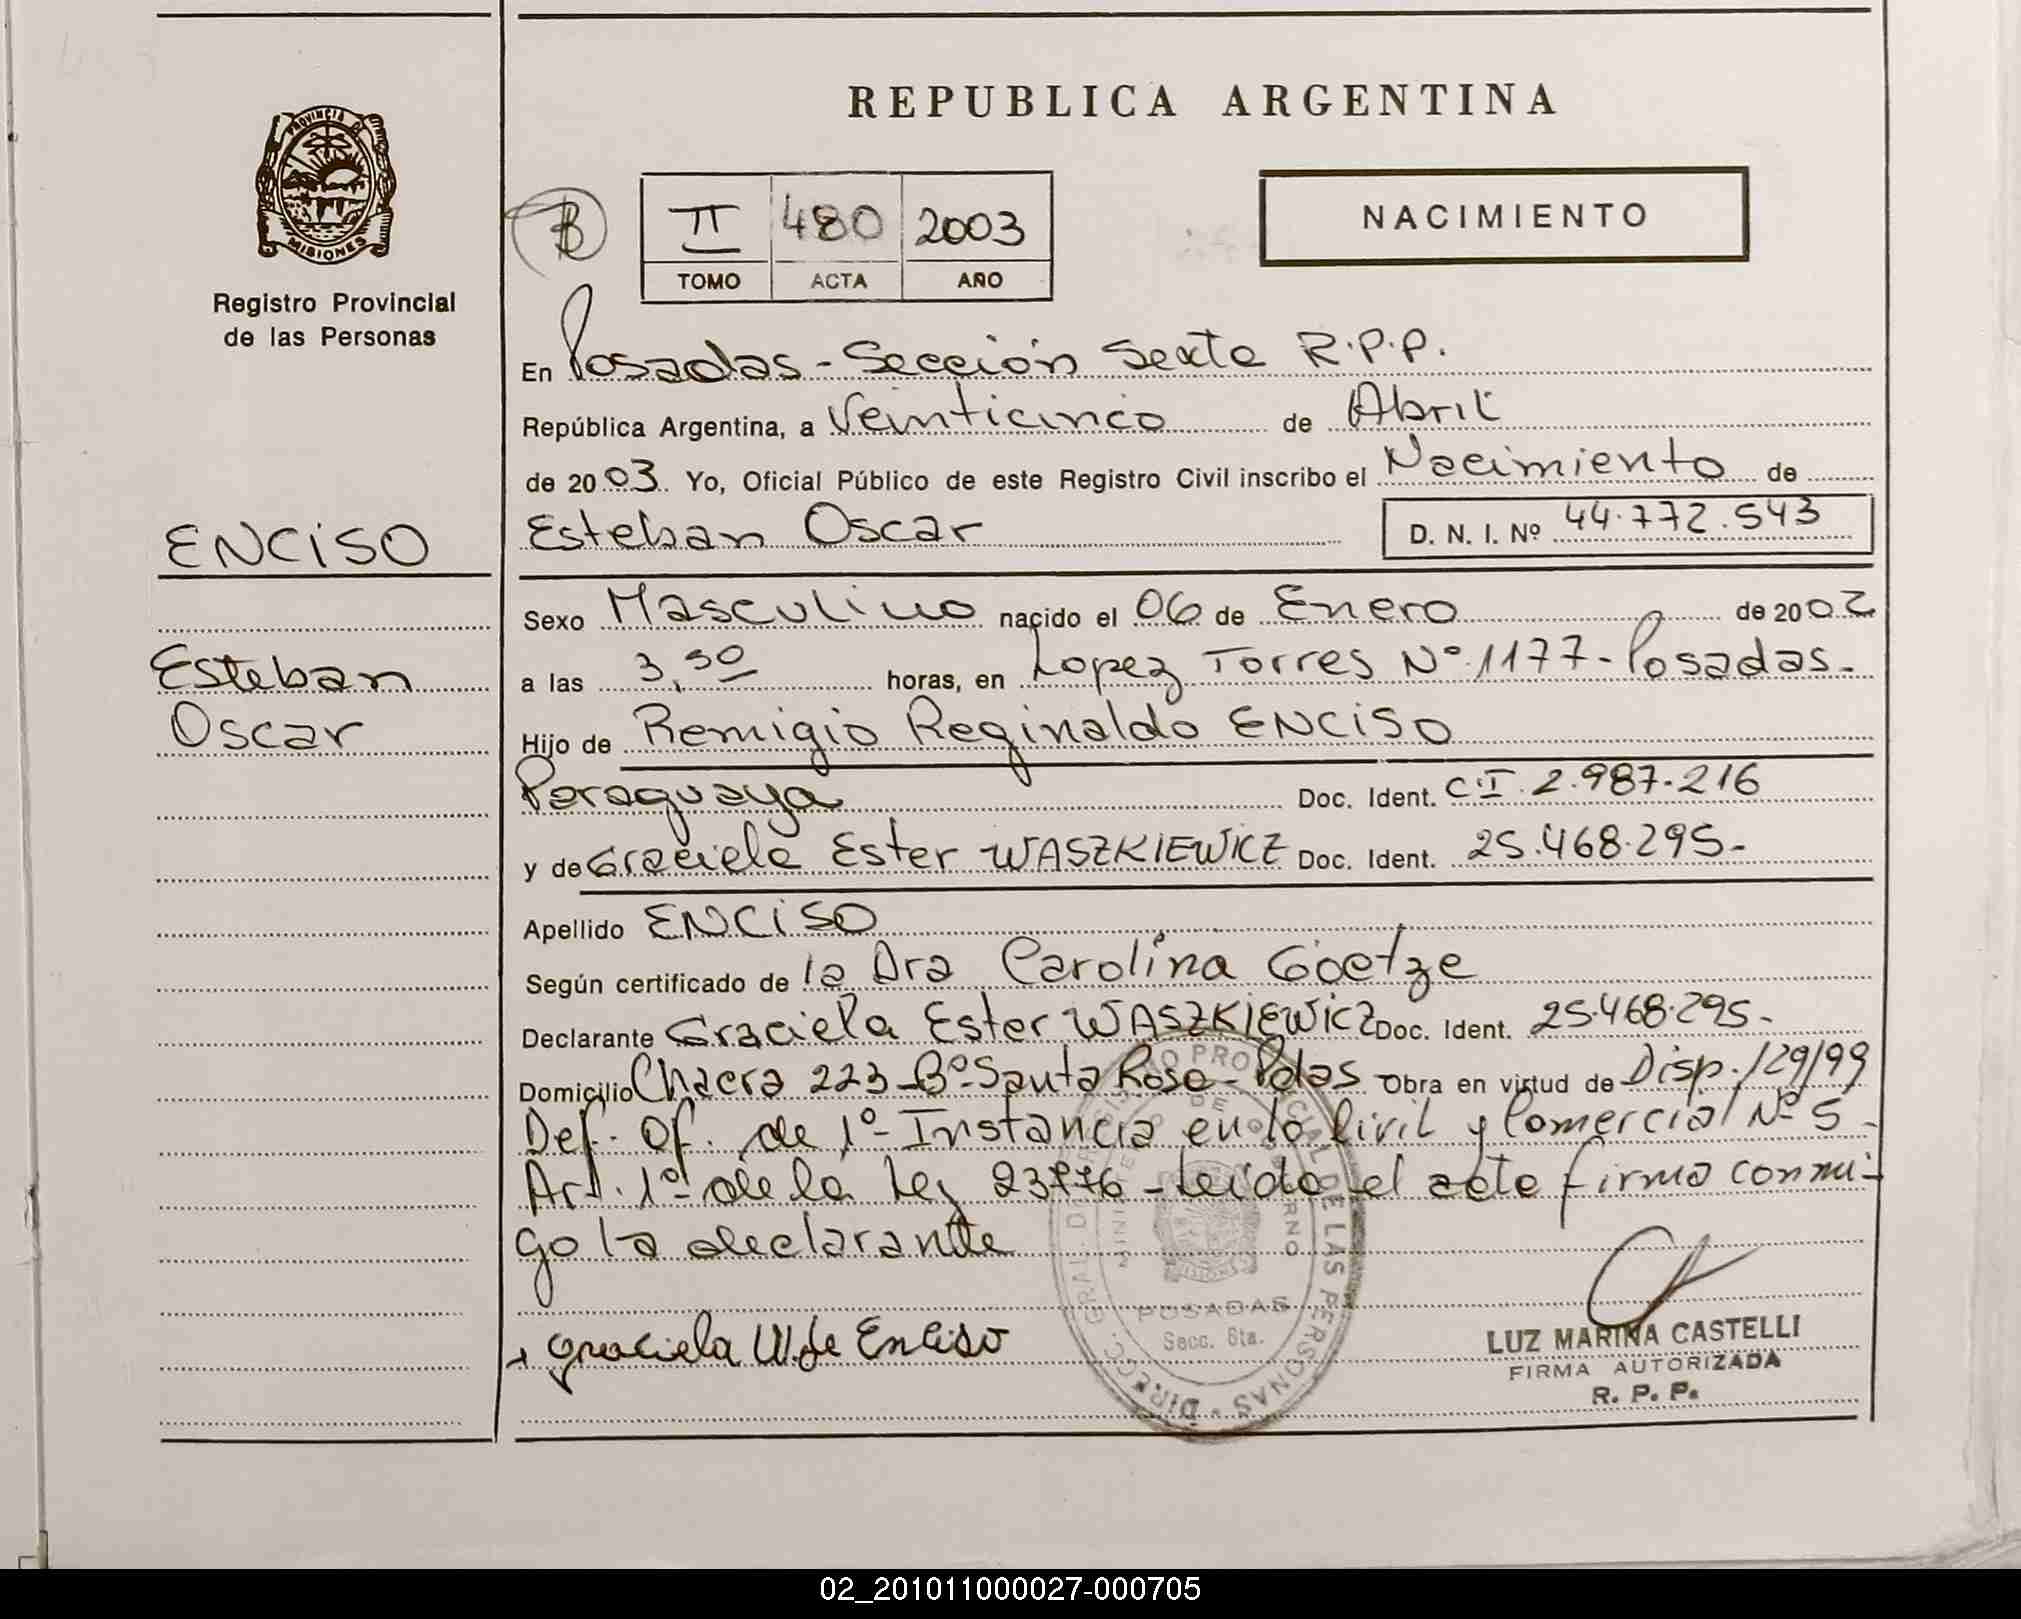 REPUBLICA ARGENTINA
PROVINCIA DE
MISIONES
Registro Provincial
de las Personas
B
II 480 2003
TOMO ACTA AÑO
NACIMIENTO
En Posadas - Sección Sexta R.P.P.
República Argentina, a Veinticinco de Abril
de 2003 Yo, Oficial Público de este Registro Civil inscribo el Nacimiento de
Esteban Oscar D. N. I. Nº 44.772.543
ENCISO
Esteban
Oscar
Sexo Masculino nacido el 06 de Enero de 2002
a las 3,30 horas, en Lopez Torres Nº 1177 - Posadas.
Hijo de Remigio Reginaldo ENCISO
Paraguaya Doc. Ident. C.I. 2.987.216
y de Graciela Ester WASZKIEWICZ Doc. Ident. 25.468.295.-
Apellido ENCISO
Según certificado de la Dra Carolina Goetze
Declarante Graciela Ester WASZKIEWICZ Doc. Ident. 25.468.295.-
Domicilio Chacra 223 - Bº Santa Rosa - Pdas Obra en virtud de Disp. 129/99
Def. Of. de 1º Instancia en lo Civil y Comercial Nº 5 -
Art. 1º de la Ley 23776 - Leída el acta firma conmi-
go la declarante
Graciela W. de Enciso
DIRECC. GRAL. DEL REGISTRO PROVINCIAL DE LAS PERSONAS
MINISTERIO DE GOBIERNO
POSADAS
Secc. 6ta.
LUZ MARINA CASTELLI
FIRMA AUTORIZADA
R. P. P.
02_201011000027-000705